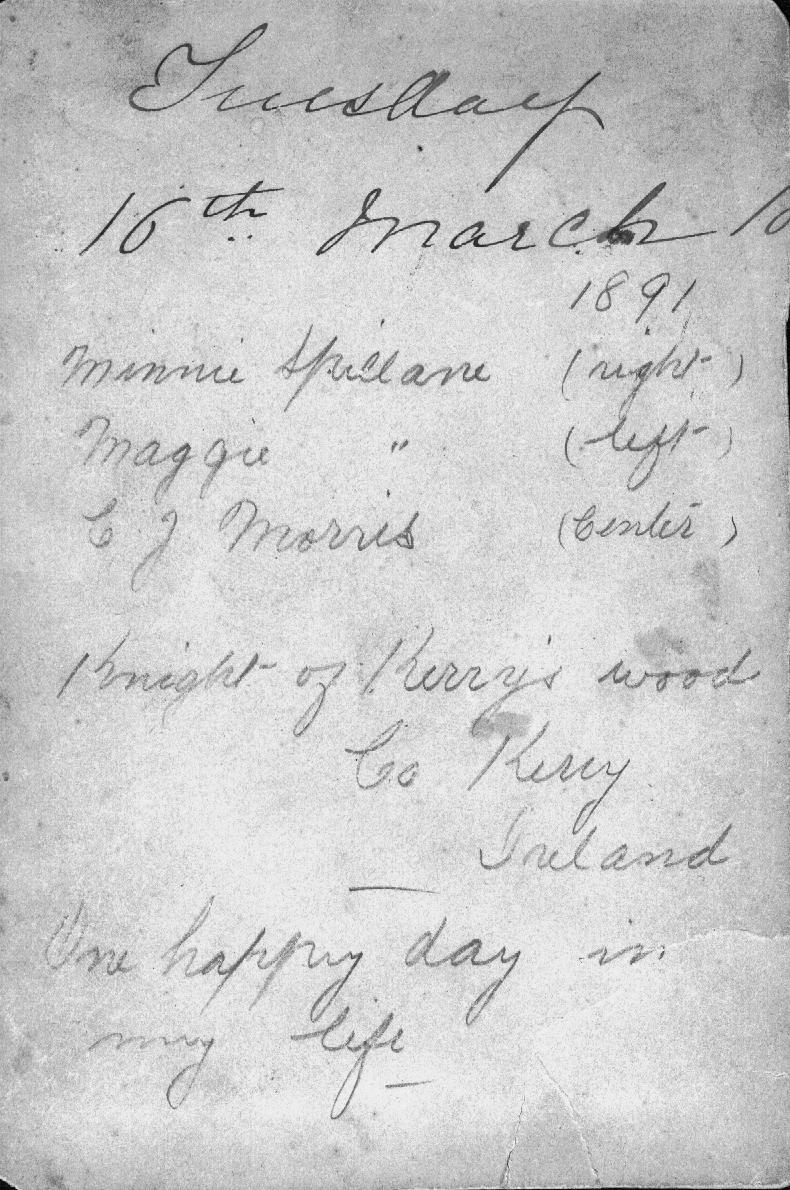 Tuesday
16th March
1891
Minnie Spillane (right)
Maggie " (left)
C J Morris (Center)
Knight of Kerry's wood
Co Kerry
Ireland
One happy day in
my life